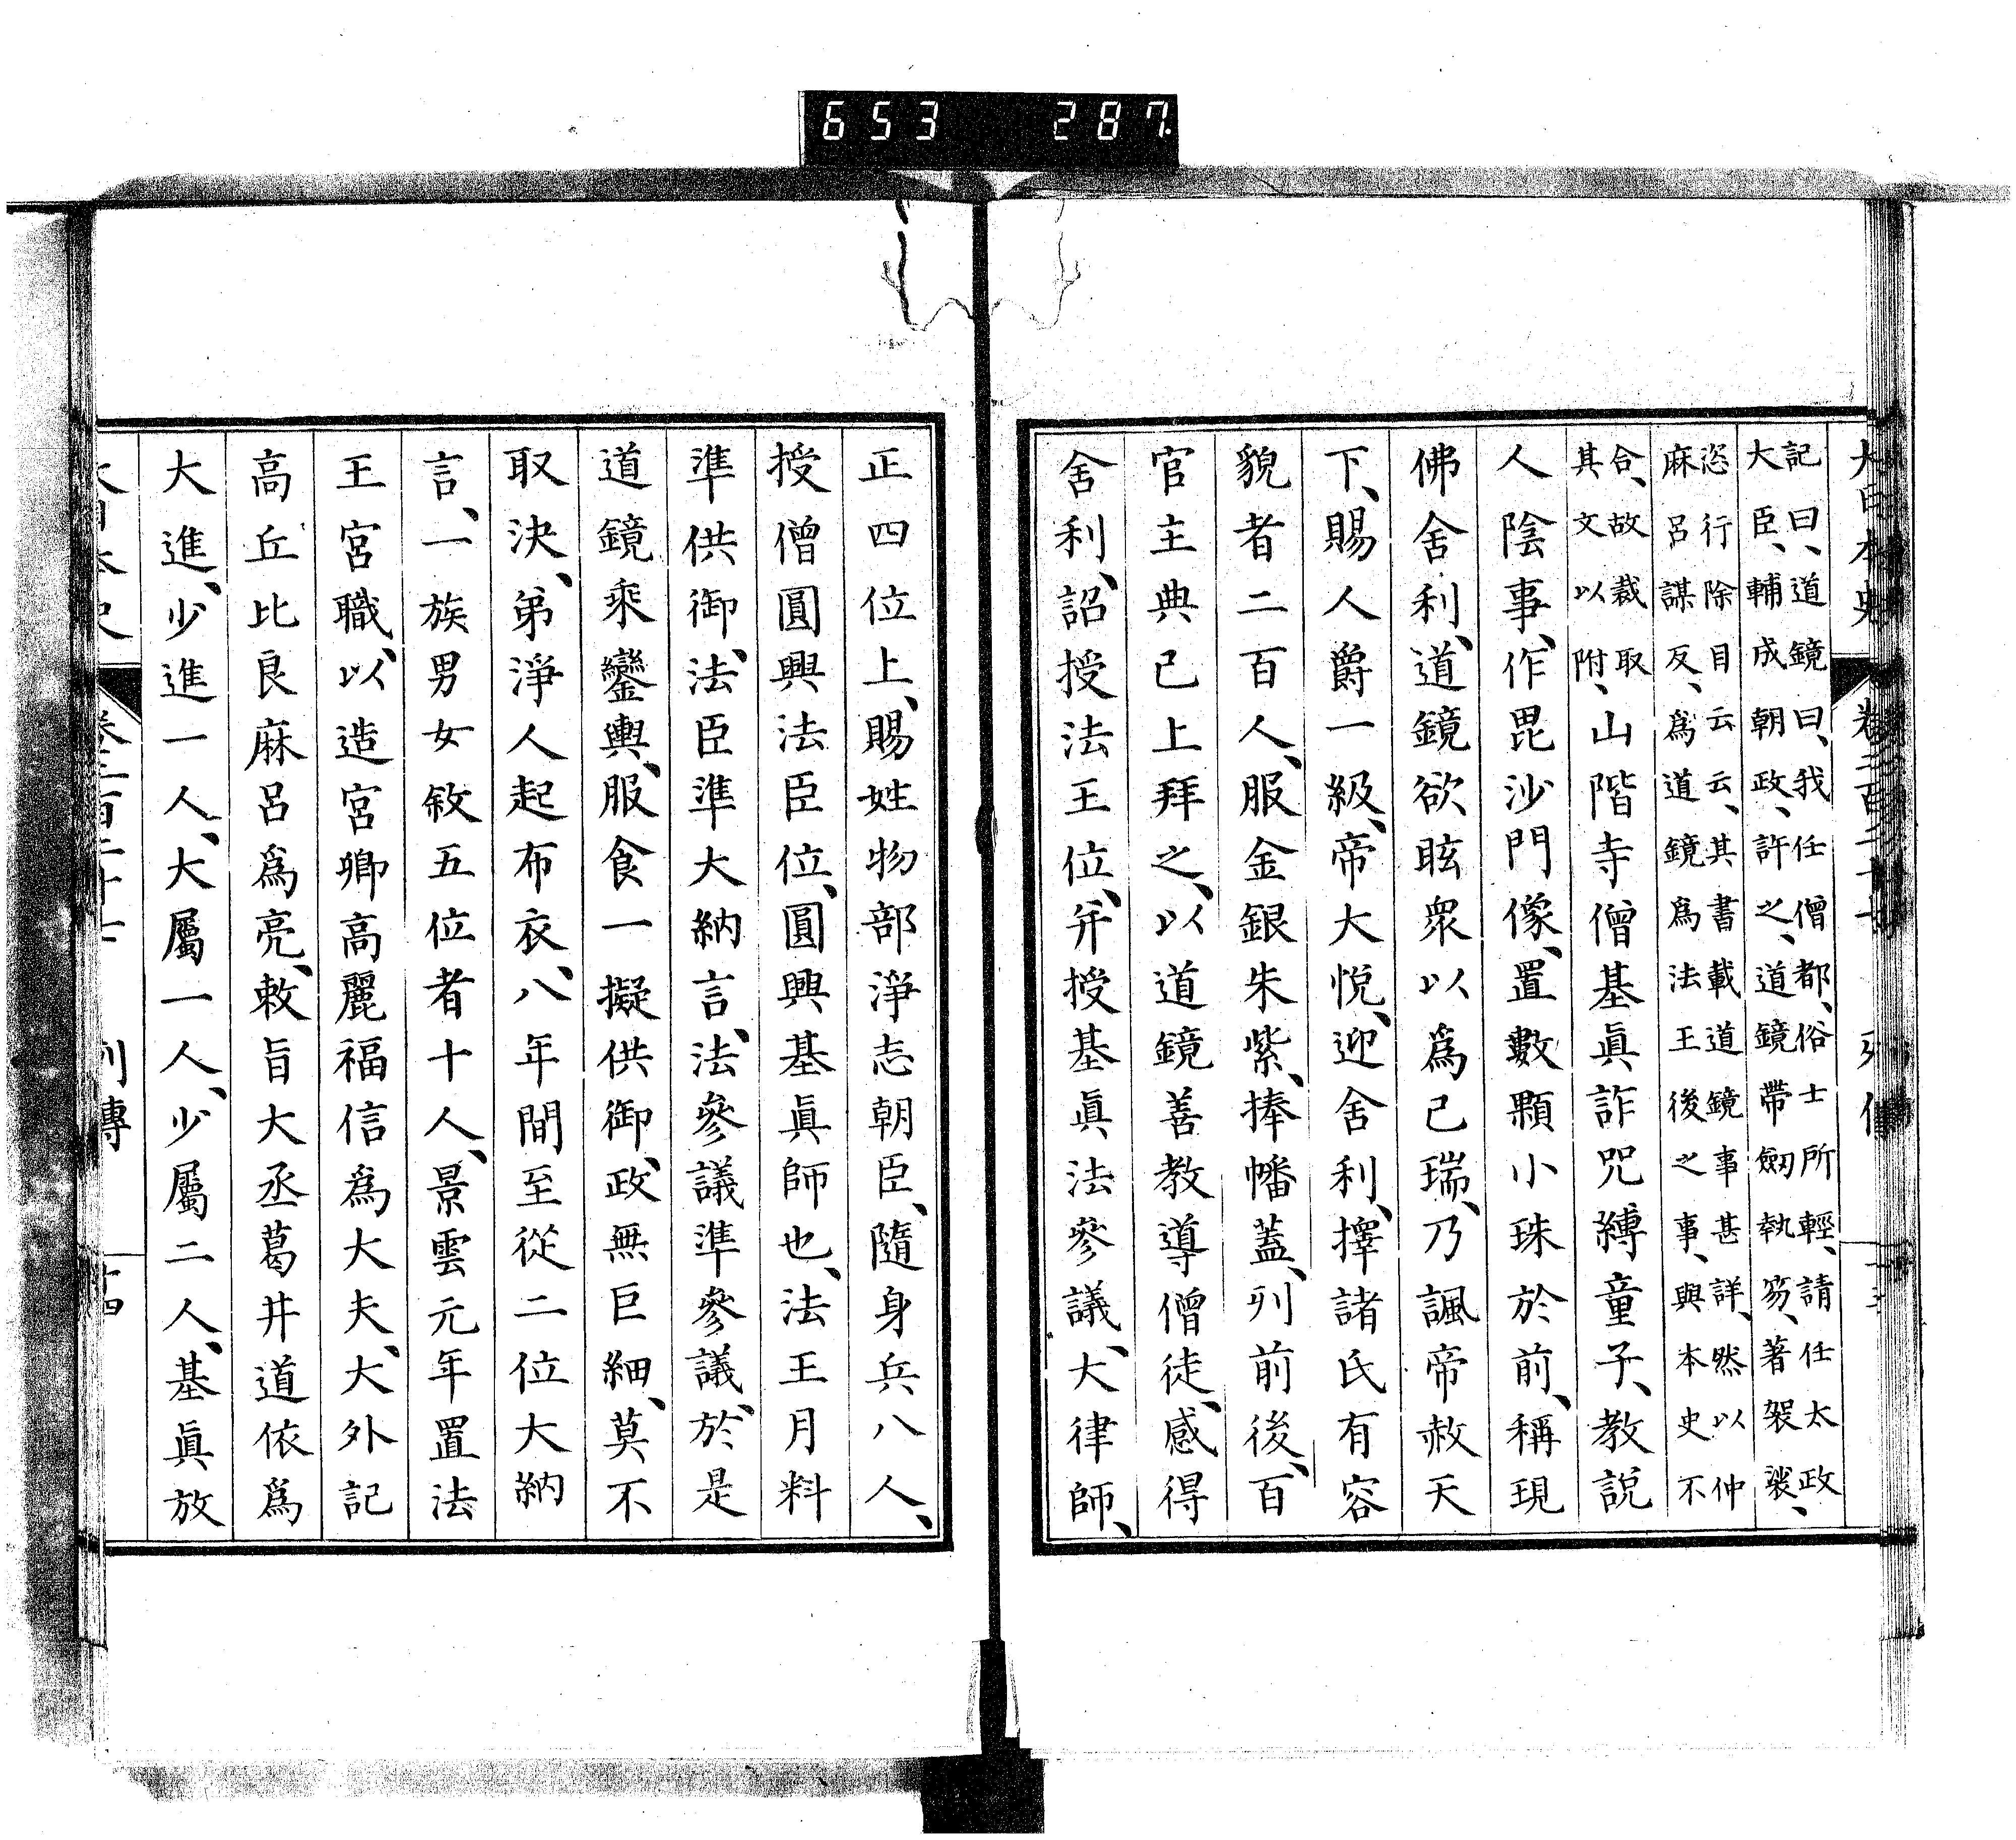 653 287
大日本史 卷二百二十七 列傳
記曰、道鏡曰、我任僧都、俗士所輕、請任太政
大臣、輔成朝政、許之、道鏡帶劒執笏、著袈裟、
恣行除目云云、其書載道鏡事甚詳、然以仲
麻呂謀反、爲道鏡爲法王後之事、與本史不
合、故裁取
其文以附、山階寺僧基眞詐咒縛童子、教說
人陰事、作毘沙門像、置數顆小珠於前、稱現
佛舍利、道鏡欲眩衆以爲己瑞、乃諷帝赦天
下、賜人爵一級、帝大悅、迎舍利、擇諸氏有容
貌者二百人、服金銀朱紫、捧幡蓋、列前後、百
官主典已上拜之、以道鏡善教導僧徒、感得
舍利、詔授法王位、幷授基眞法參議、大律師、
正四位上、賜姓物部淨志朝臣、隨身兵八人、
授僧圓興法臣位、圓興基眞師也、法王月料
準供御、法臣準大納言、法參議準參議、於是
道鏡乘鑾輿、服食一擬供御、政無巨細、莫不
取決、弟淨人起布衣、八年間至從二位大納
言、一族男女敘五位者十人、景雲元年置法
王宮職、以造宮卿高麗福信爲大夫、大外記
高丘比良麻呂爲亮、敕旨大丞葛井道依爲
大進、少進一人、大屬一人、少屬二人、基眞放
大日本史 卷二百二十七 列傳 十四